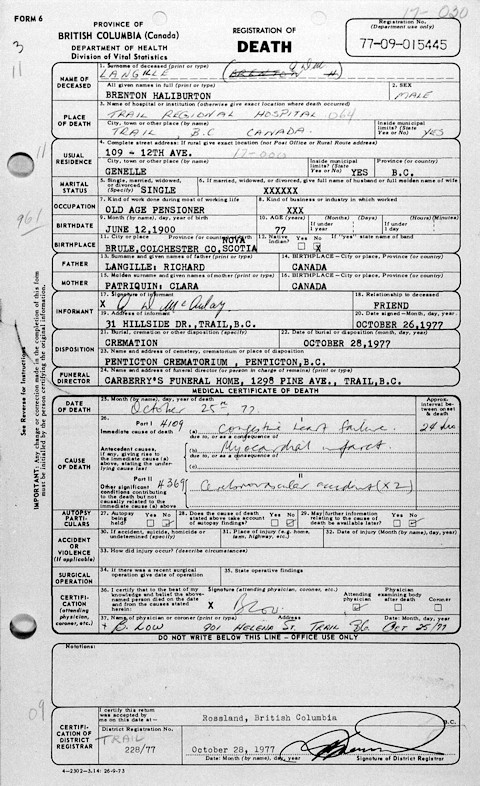 FORM 6
17-030
PROVINCE OF
BRITISH COLUMBIA (Canada)
DEPARTMENT OF HEALTH
Division of Vital Statistics
REGISTRATION OF
DEATH
Registration No.
(Department use only)
77-09-015445
3
11
NAME OF DECEASED
1. Surname of deceased (print or type)
LANGILLE
BRENTON H.
All given names in full (print or type)
BRENTON HALIBURTON
2. SEX
MALE
PLACE OF DEATH
3. Name of hospital or institution (otherwise give exact location where death occurred)
TRAIL REGIONAL HOSPITAL 064
City, town or other place (by name)
TRAIL B.C CANADA.
Inside municipal limits? (State Yes or No)
YES
11
USUAL RESIDENCE
4. Complete street address: If rural give exact location (not Post Office or Rural Route address)
109 - 12TH AVE. 17-000
City, town or other place (by name)
GENELLE
Inside municipal limits? (State Yes or No) YES
Province (or country)
B.C.
MARITAL STATUS
5. Single, married, widowed, or divorced (Specify) SINGLE
6. If married, widowed, or divorced, give full name of husband or full maiden name of wife
XXXXXX
OCCUPATION
7. Kind of work done during most of working life
OLD AGE PENSIONER
8. Kind of business or industry in which worked
XXX
961
BIRTHDATE
9. Month (by name), day, year of birth
JUNE 12,1900
10. AGE (years)
77
If under 1 year (Months) (Days)
If under 1 day (Hours) (Minutes)
BIRTHPLACE
11. City or place Province (or country) of birth
BRULE,COLCHESTER CO,NOVA SCOTIA
12. Native Indian? Yes No X
If "yes" state name of band
FATHER
13. Surname and given names of father (print or type)
LANGILLE: RICHARD
14. BIRTHPLACE - City or place, Province or country
CANADA
MOTHER
15. Maiden surname and given names of mother (print or type)
PATRIQUIN: CLARA
16. BIRTHPLACE - City or place, Province or country
CANADA
INFORMANT
17. Signature of informant
X
18. Relationship to deceased
FRIEND
19. Address of informant
31 HILLSIDE DR.,TRAIL,B.C.
20. Date signed - Month, day, year
OCTOBER 26,1977
DISPOSITION
21. Burial, cremation or other disposition (specify)
CREMATION
22. Date of burial or disposition (month, day, year)
OCTOBER 28,1977
23. Name and address of cemetery, crematorium or place of disposition
PENTICTON CREMATORIUM , PENTICTON,B.C.
FUNERAL DIRECTOR
24. Name and address of funeral director (or person in charge of remains) (print or type)
CARBERRY'S FUNERAL HOME, 1298 PINE AVE., TRAIL,B.C.
See Reverse for Instructions
IMPORTANT: Any change or correction made in the completion of this form must be initialled by the person certifying the original information.
MEDICAL CERTIFICATE OF DEATH
DATE OF DEATH
25. Month (by name), day, year of death
October 25th 77.
Approx. interval between onset & death
CAUSE OF DEATH
26. Part I 4109
Immediate cause of death (a) Congestive heart failure
due to, or as a consequence of
24 hrs
Antecedent causes, if any, giving rise to the immediate cause (a) above, stating the underlying cause last
(b) Myocardial infarct.
due to, or as a consequence of
(c)
Part II 4369
Other significant conditions contributing to the death but not causally related to the immediate cause (a) above
II
Cerebrovascular accident (x2)
AUTOPSY PARTICULARS
27. Autopsy being held? Yes No
28. Does the cause of death stated above take account of autopsy findings? Yes No
29. May further information relating to the cause of death be available later? Yes No
ACCIDENT OR VIOLENCE (If applicable)
30. If accident, suicide, homicide or undetermined (specify)
31. Place of injury (e.g. home, farm, highway, etc.)
32. Date of injury (Month (by name), day, year)
33. How did injury occur? (describe circumstances)
SURGICAL OPERATION
34. If there was a recent surgical operation give date of operation
35. State operational findings
CERTIFICATION (attending physician, coroner, etc.)
36. I certify that to the best of my knowledge and belief the above-named person died on the date and from the causes stated herein:
Signature (attending physician, coroner, etc.)
X B Low.
Attending physician
Physician examining body after death
Coroner
37. Name of physician or coroner (print or type) Address Date: Month, day, year
B. LOW 901 HELENA ST. TRAIL BC OCT 25/77
DO NOT WRITE BELOW THIS LINE - OFFICE USE ONLY
Notations:
09
CERTIFICATION OF DISTRICT REGISTRAR
I certify this return was accepted by me on this date at-
Rossland, British Columbia
B.C.
District Registration No.
TRAIL
228/77
October 28, 1977
Date: Month (by name), day, year
Signature of District Registrar
4-2302-3.14: 26-9-73